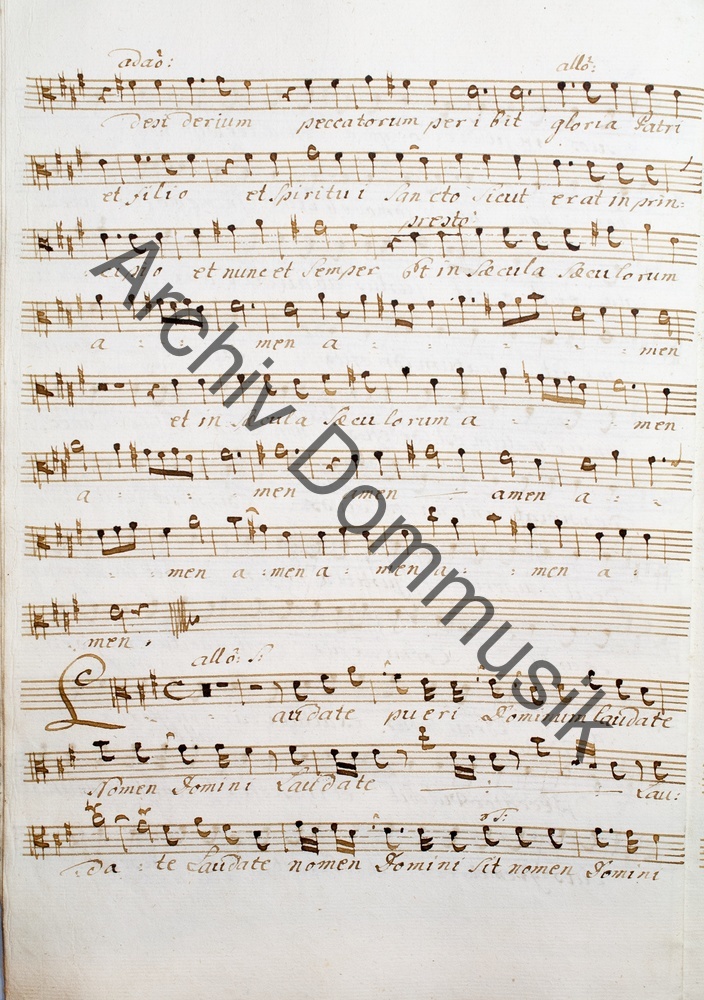 adaõ: allõ:
desi derium peccatorum peri bit gloria Patri
et filio et Spiritui San cto Sicut erat in prin:
presto
cipio et nunc et Semper Et in Sæcula Sæculorum
a : : men a : : : men
et in Sæcula Sæculorum a : : men
a : : men amen amen a : :
men a : men a : men a : men a :
men .
allõ: S:
Laudate pueri Dominum laudate
Nomen Domini Laudate Lau:
da : te Laudate nomen Domini Sit nomen Domini
Archiv Dommusik